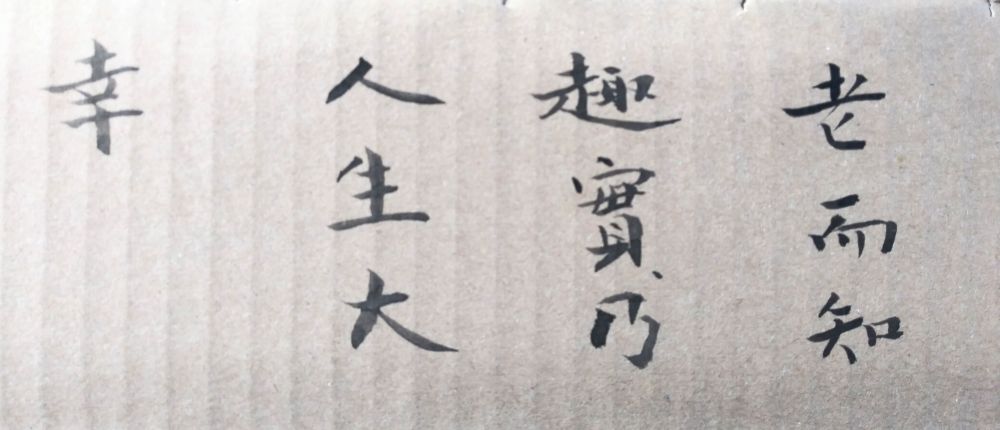 老而知
趣實乃
人生大
幸